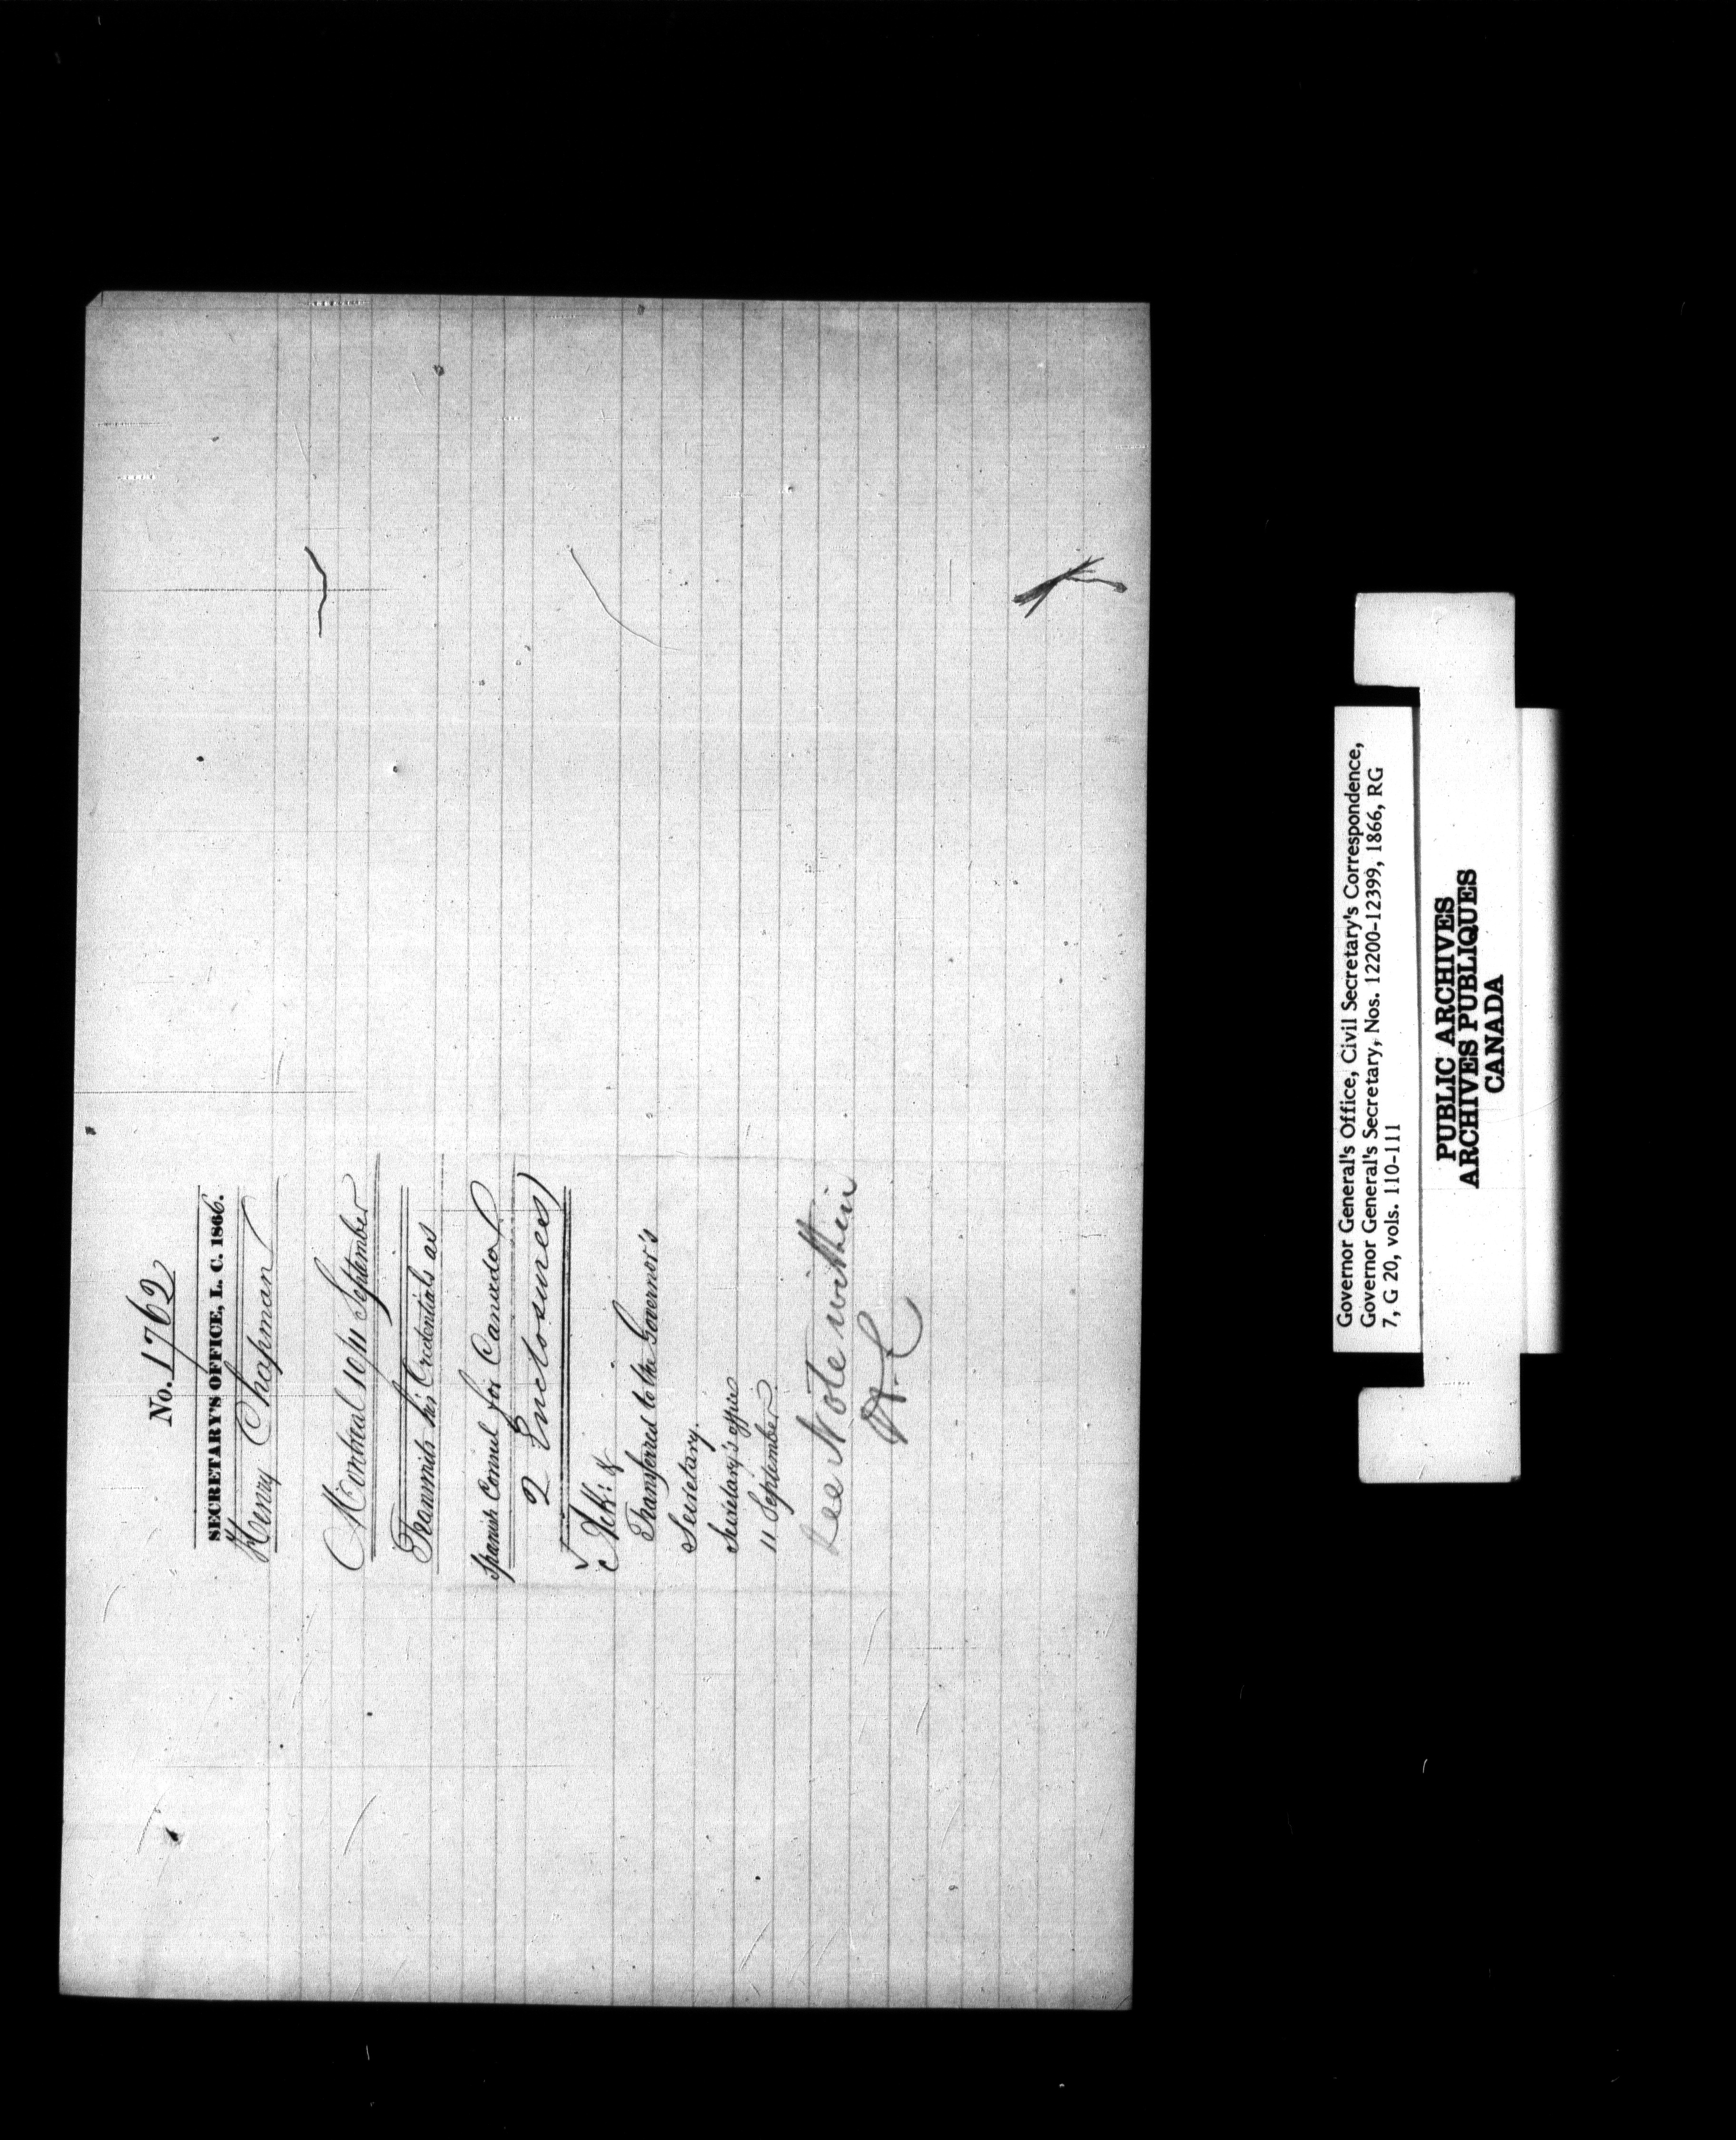 No. 1762
SECRETARY'S OFFICE, L. C. 1866.
Henry Chapman
Montreal 10/11 September
Transmits his Credentials as
Spanish Consul for Canada
2 Enclosures)
Ack: &
Transferred to the Governor's
Secretary.
Secretary's office
11 September
See Note within
Governor General's Office, Civil Secretary's Correspondence,
Governor General's Secretary, Nos. 12200-12399, 1866, RG
7, G 20, vols. 110-111
PUBLIC ARCHIVES
ARCHIVES PUBLIQUES
CANADA